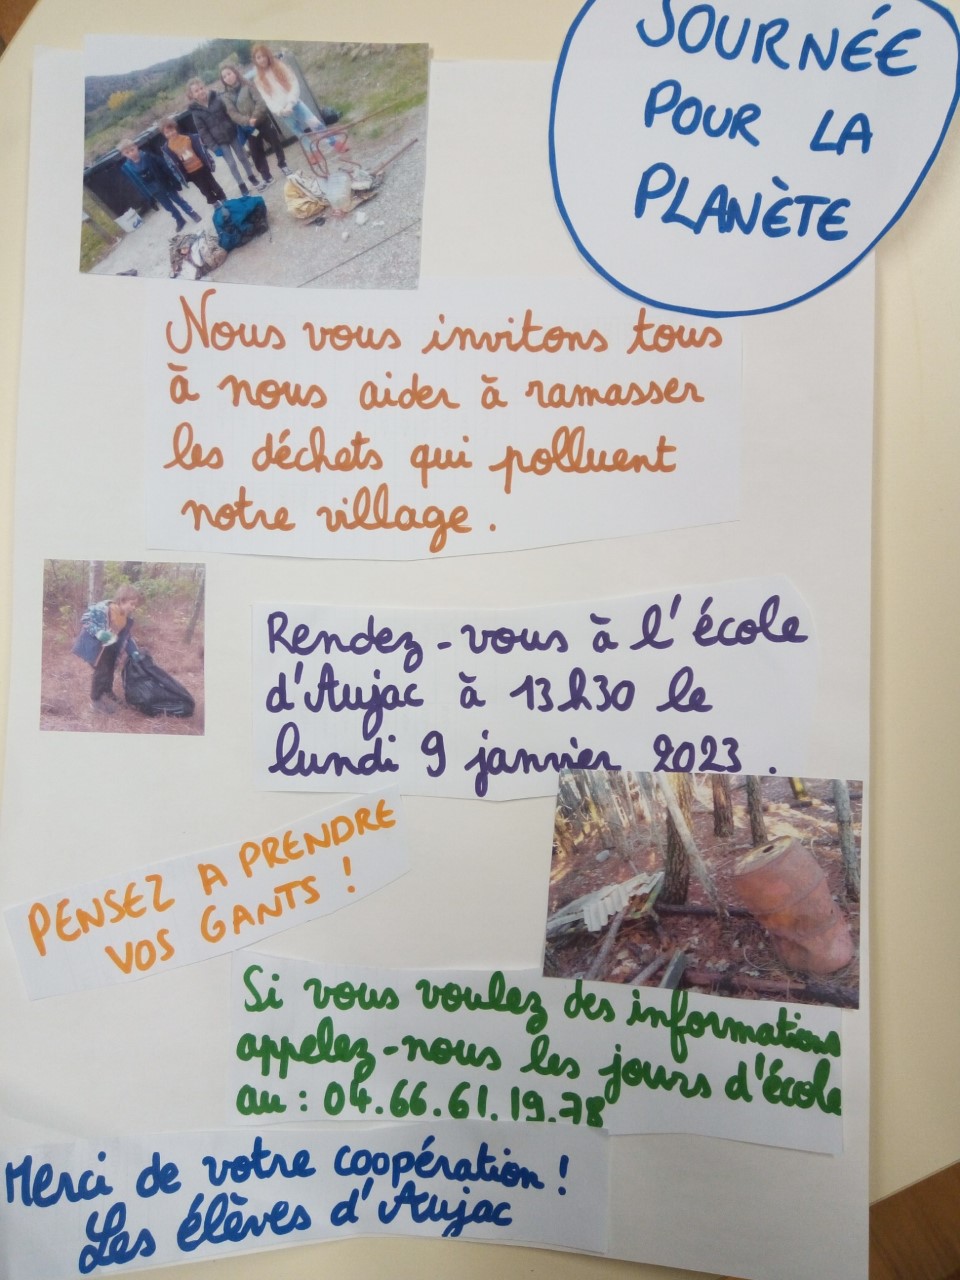 JOURNÉE
POUR LA
PLANÈTE
Nous vous invitons tous
à nous aider à ramasser
les déchets qui polluent
notre village.
Rendez-vous à l'école
d'Aujac à 13h30 le
lundi 9 janvier 2023.
PENSEZ A PRENDRE
VOS GANTS !
Si vous voulez des informations
appelez-nous les jours d'école
au : 04.66.61.19.78
Merci de votre coopération !
Les élèves d'Aujac